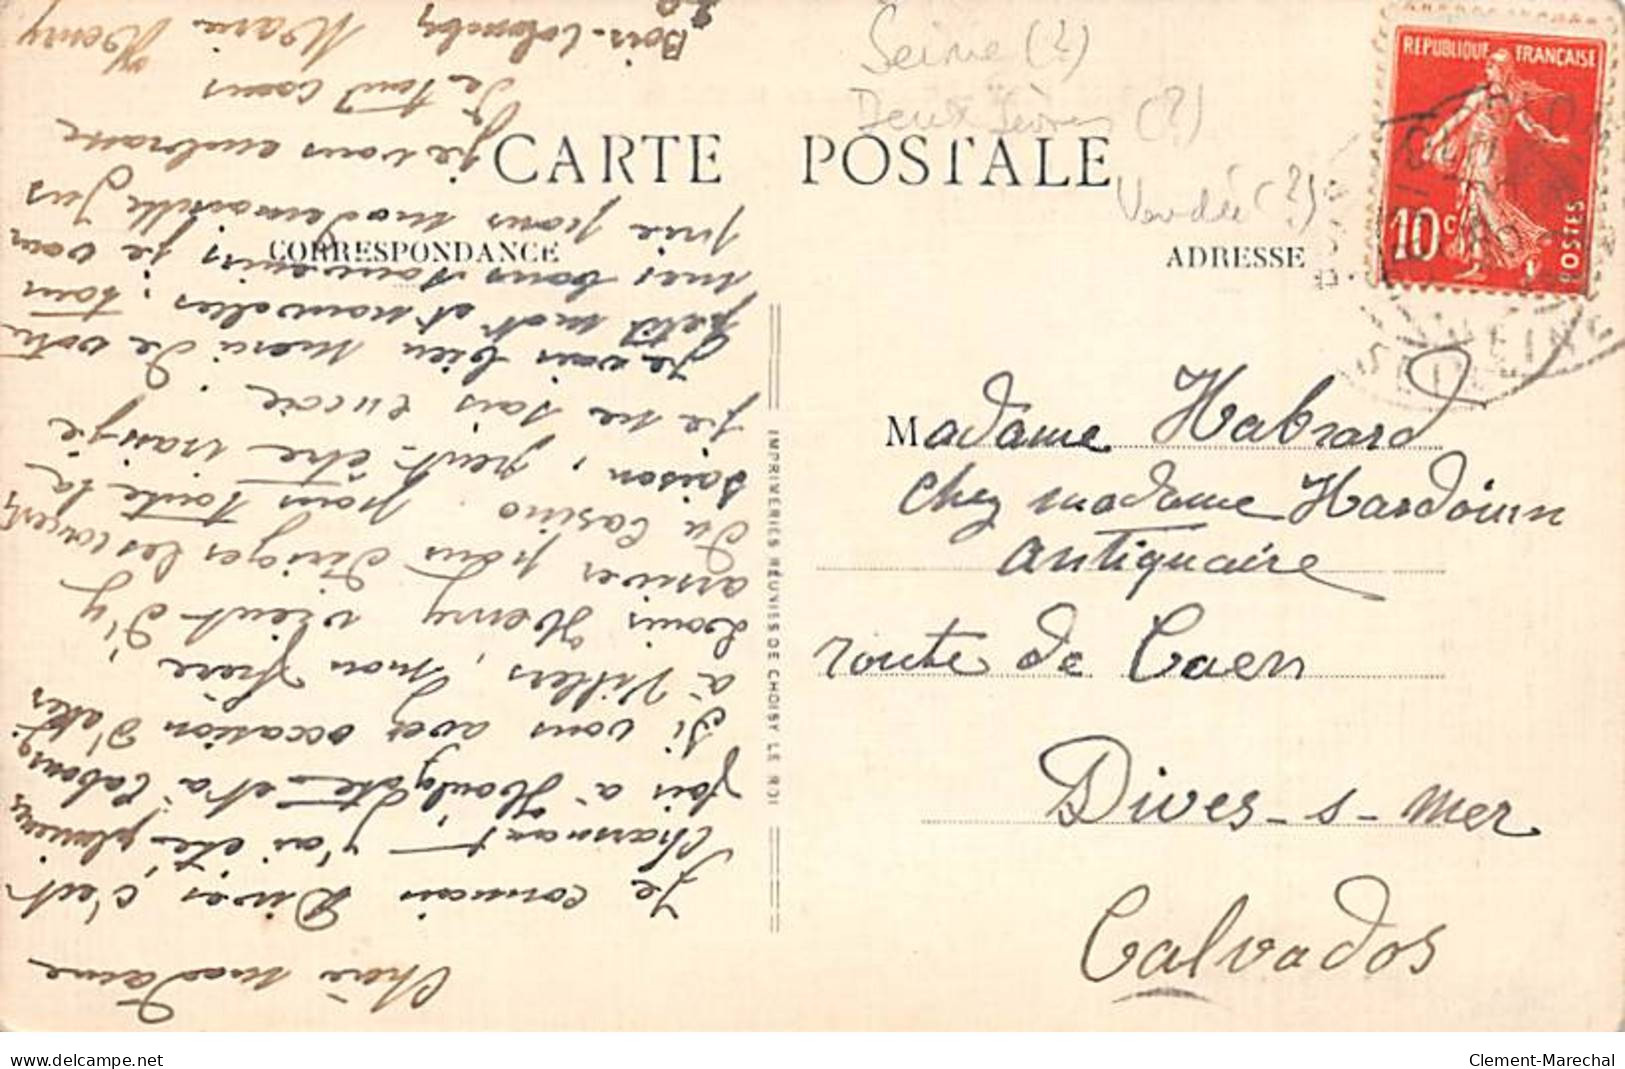 Bois-Colombes
Seine (?)
Deux Sèvres (?)
Vendée (?)
REPUBLIQUE FRANÇAISE
10c
POSTES
CARTE POSTALE
CORRESPONDANCE
ADRESSE
Madame Habrard
chez madame Hardouin
antiquaire
route de Caen
Dives-s-mer
Calvados
SEINE
IMPRIMERIES RÉUNIES DE CHOISY LE ROI
Chère madame
Je connais Dives, c'est
charmant, j'ai été plusieurs
fois à Houlgate et à Cabourg
Si vous avez occasion d'aller
à Villers, mon frère
Louis Henry vient d'y
arriver pour diriger les concerts
du Casino pour toute la
saison, peut-être irai-je
je ne sais encore.
Je vous bien merci de votre
petit mot et nouvelles; tous
mes bons souvenirs je vous
prie pour mademoiselle
Je vous embrasse
de tout coeur
Marie Henry
Clement-Marechal
www.delcampe.net